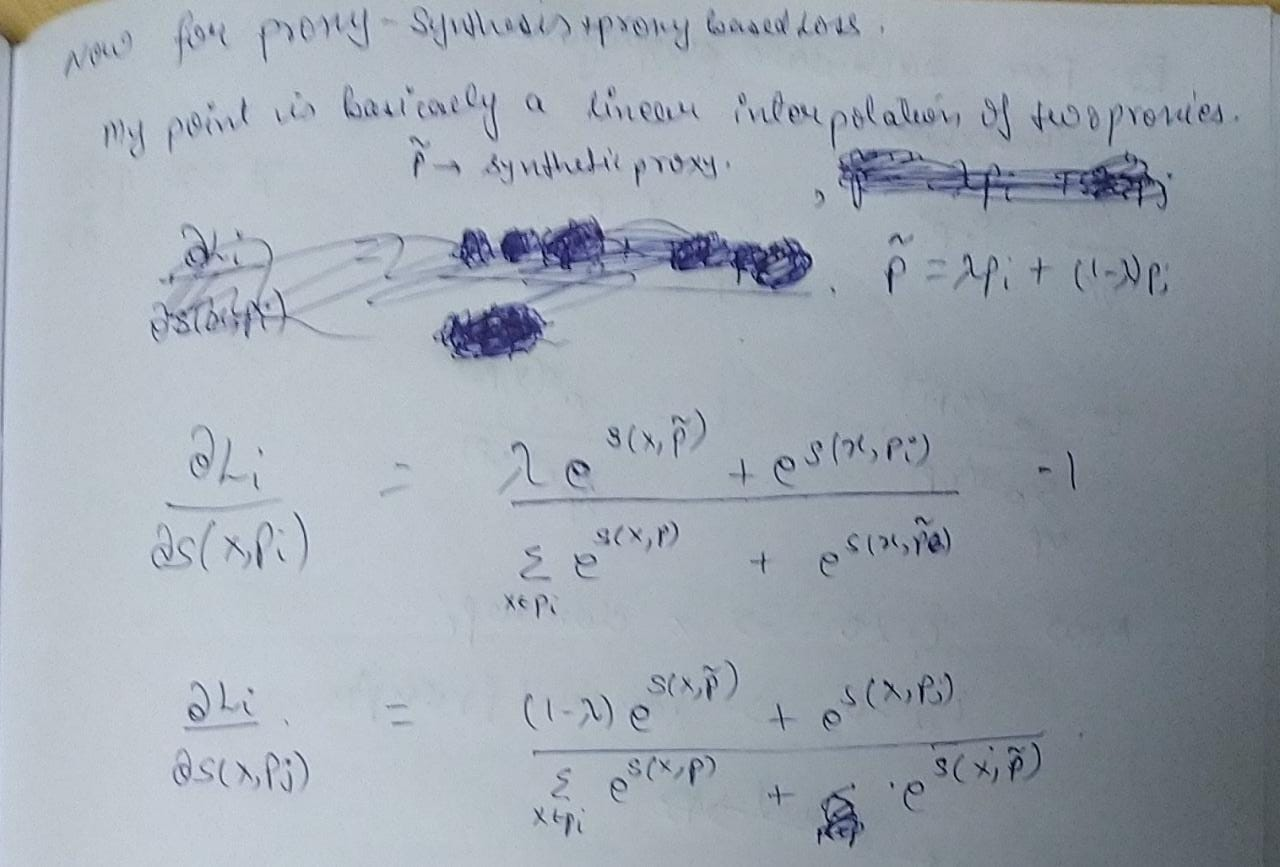 Now for proxy-synthesis + proxy based loss.
My point is basically a linear interpolation of two proxies.
p̃ → synthetic proxy.
p̃ = λpi + (1-λ)pj
∂Li / ∂s(x,pi) = (λ e^s(x,p̃) + e^s(x,pi)) / (Σ x∈pi e^s(x,p) + e^s(x,p̃)) - 1
∂Li / ∂s(x,pj) = ((1-λ) e^s(x,p̃) + e^s(x,pj)) / (Σ x∈pi e^s(x,p) + e^s(x,p̃)).